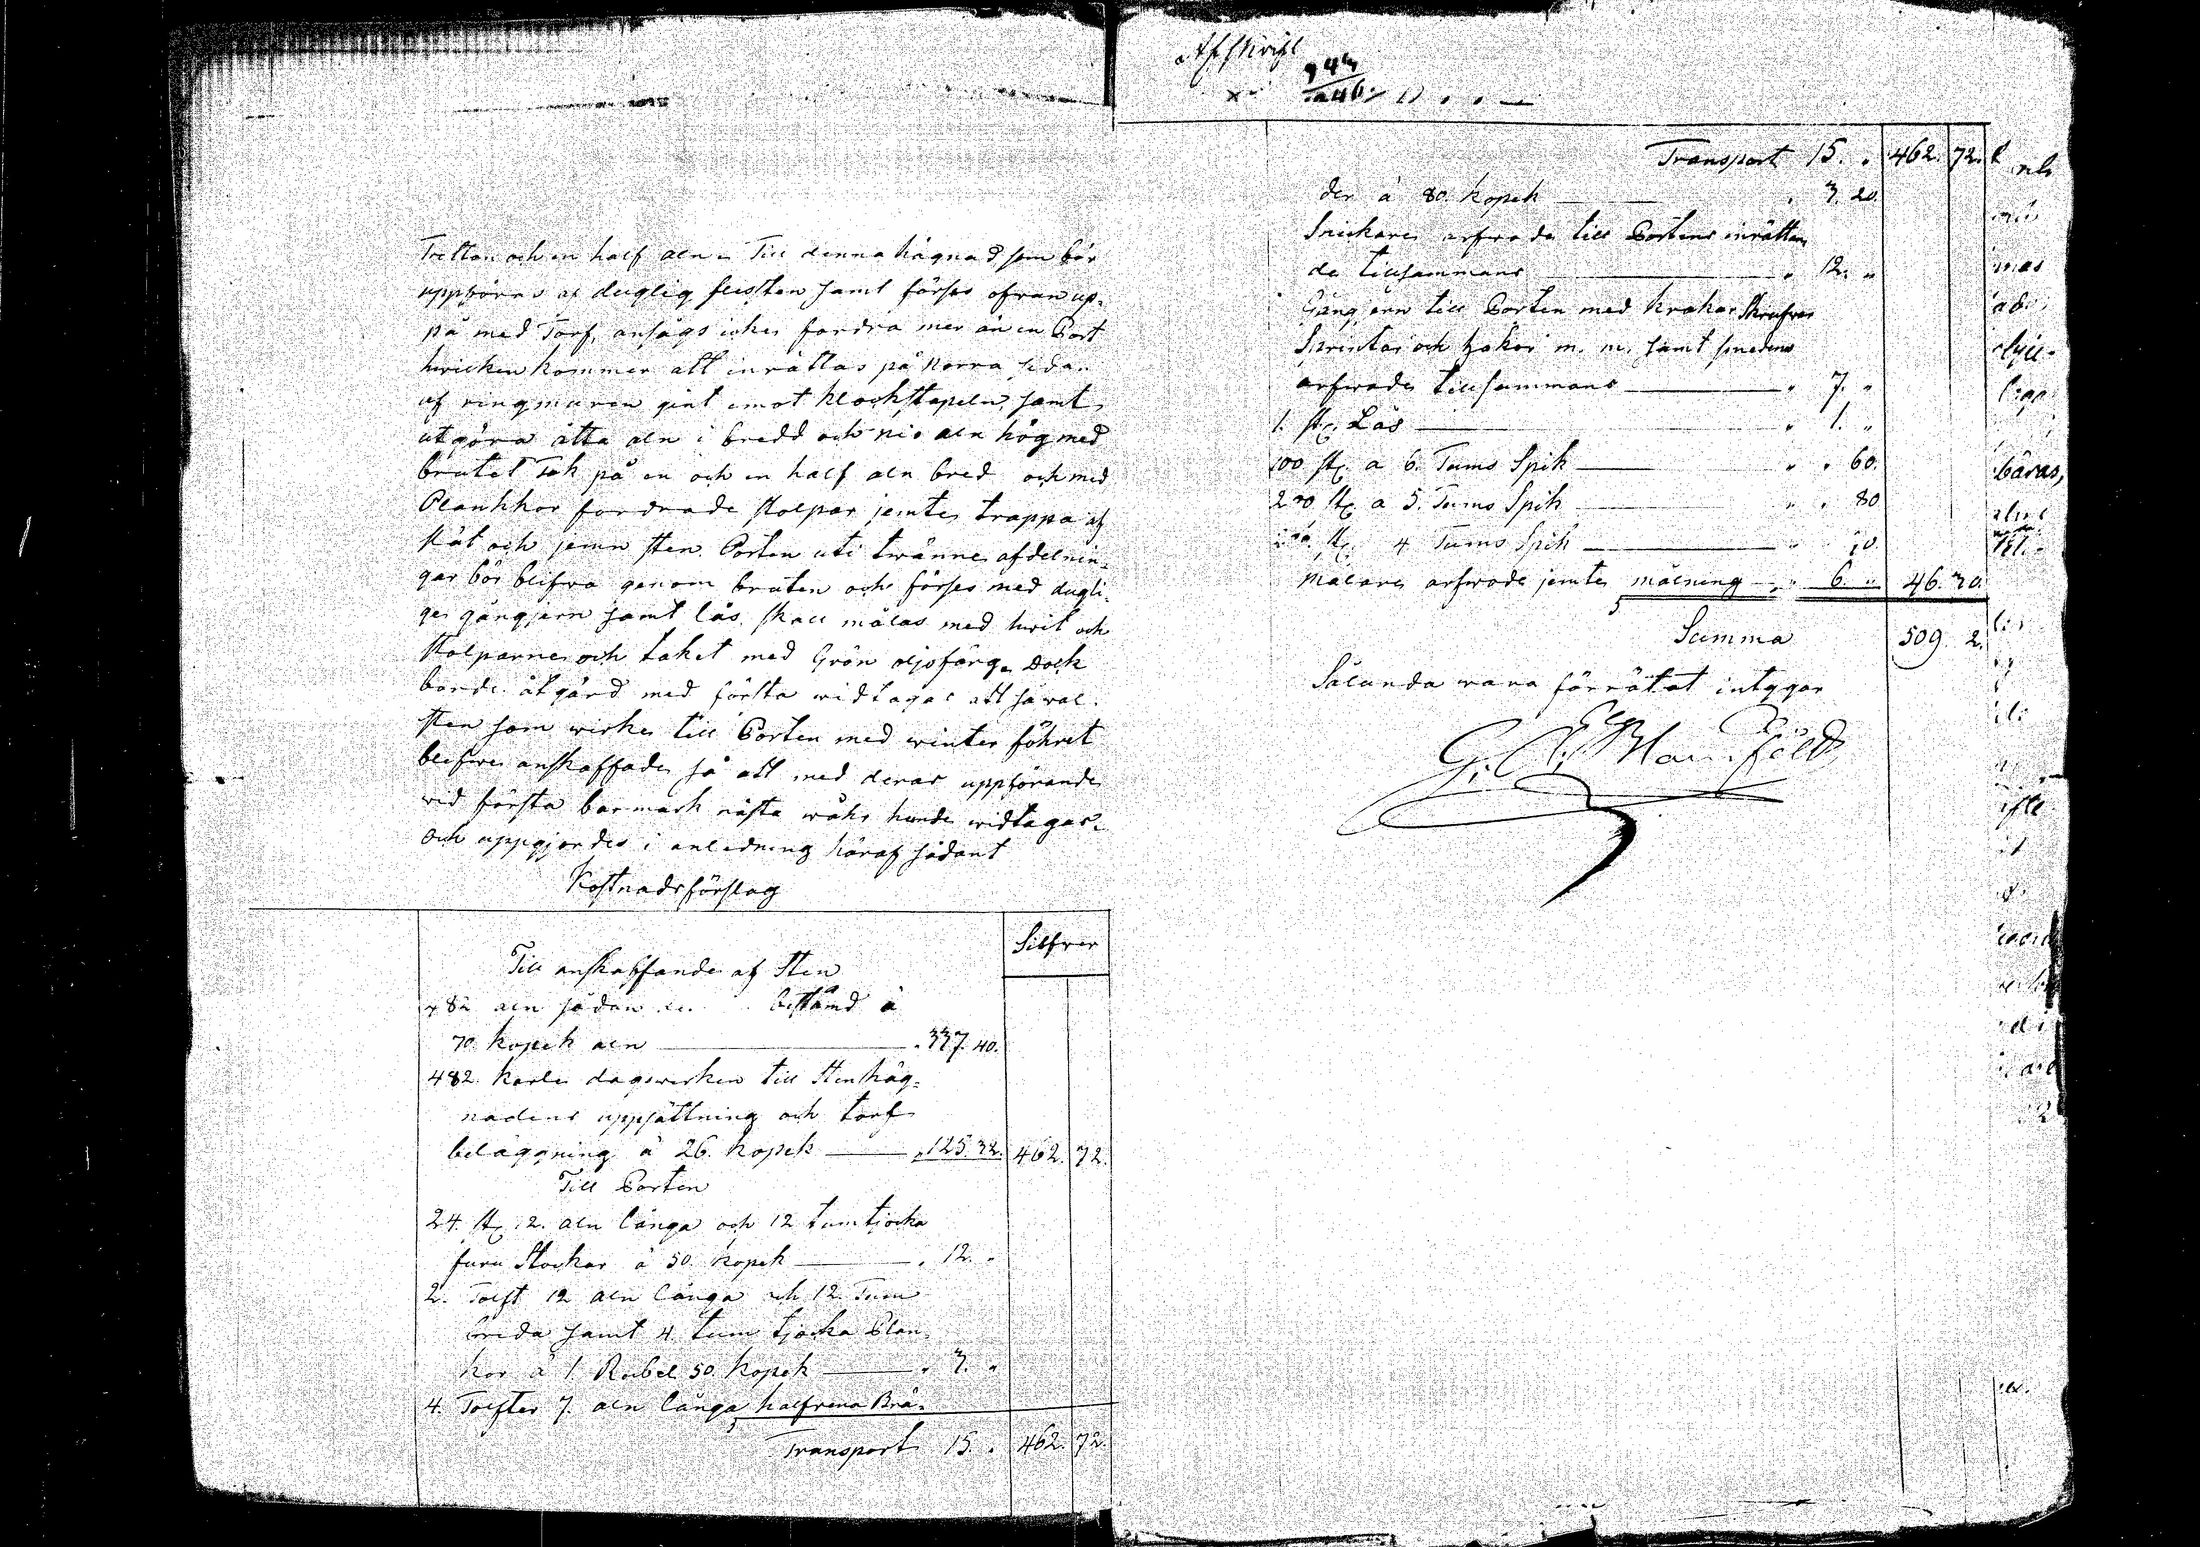 Tretton och en half aln. Till denna hägnad som bör
uppföras af duglig sten samt förses ofvan up-
på med Torf, ansågs icke fordra mer än en Port
hvilken kommer att inrättas på norra sidan
af ringmuren gent emot klockstapeln, samt
utgöra åtta aln i bredd och nio aln hög med
brutet Tak på en och en half aln bred och med
Plankkor fordrade stolpar jemte trappa af
slät och jemn sten. Porten uti twänne afdelnin-
gar bör blifwa genom bruten och förses med dugli-
ge gångjern samt lås. skall målas med hwit och
stolparne och taket med Grön oljefärg. Dock
borde åtgärd med första widtagas att såwäl
sten som wirke till Porten med winter föhret
blifwe anskaffade så att med deras uppförande
wid första barmark nästa wåhr kunde widtagas.
och uppgjordes i anledning häraf sådant
Kostnadsförslag
Silfver
Till anskaffande af Sten
482 aln sådan bestämd à
70 kopek aln 337. 40.
482. karls dagswerken till Stenhäg-
nadens uppsättning och torf
beläggning à 26. kopek 125. 32. 462. 72.
Till Porten
24. st. 12. aln långa och 12 tum tjocka
furu Stockar à 50. kopek 12. "
2. Tolft 12 aln långa och 12 Tum
breda samt 4. tum tjocka Plan-
kor à 1. Rubel 50. kopek 3. "
4. Tolfter 7. aln långa halfrena Brä-
Transport 15. " 462. 72.
Afskrift
Transport 15. " 462. 72.
der à 80. kopek 3. 20.
Snickare arfwode till Portens inrättan
de tillsammans 12. "
Gångjern till Porten med krakar Skrufwar
Sprintar och hakar m. m. samt smedens
arfwode tillsammans 7. "
1. st. Lås 1. "
100 st. a 6. Tums Spik " 60.
200 st. a 5. Tums Spik " 80
st. 4 Tums Spik
Målare arfwode jemte målning 6. " 46. 30.
Summa 509. 2.
Sålunda wara förrättat intygar